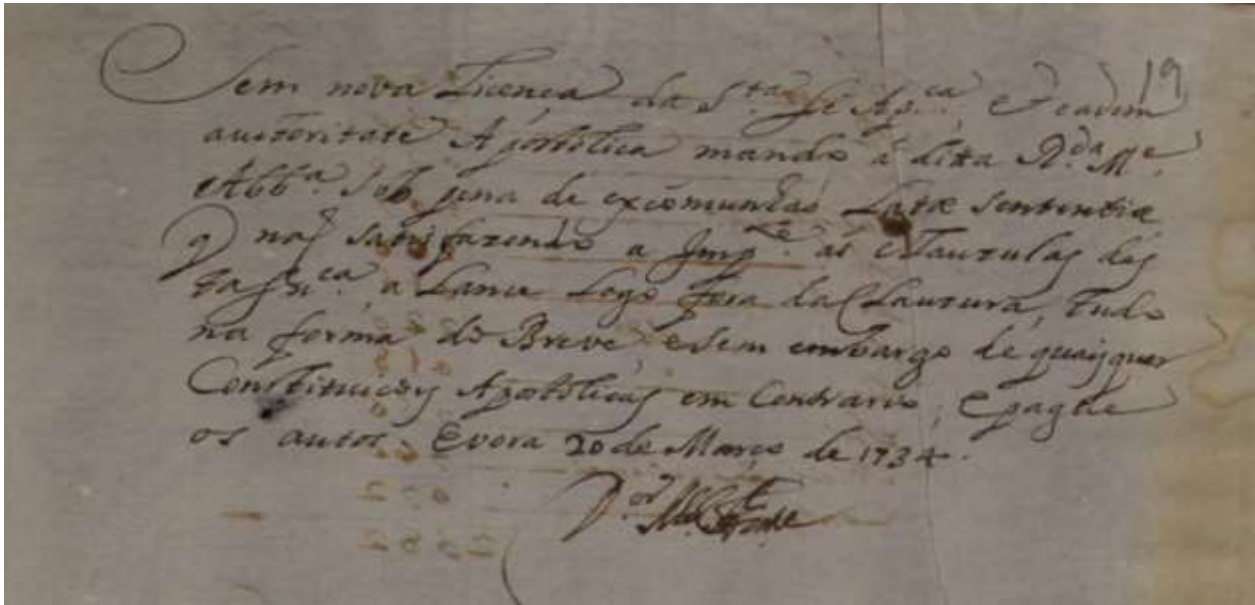 Sem nova Licença da S.ta Sé Ap.ca, et eadem 19
authoritate Apostolica mando á ditta R.da M.e
Abb.a Sob pena de excomunhão Latæ Sententiæ
q naõ satisfazendo a Imp.te as Clauzulas des
tas, a Lance Logo fora da Clauzura, tudo
na forma do Breve, e sem embargo de quaisquer
Constituicoẽs Apostolicas em Contrario, e pague
os autos. Evora 20 de Março de 1734.
D.or